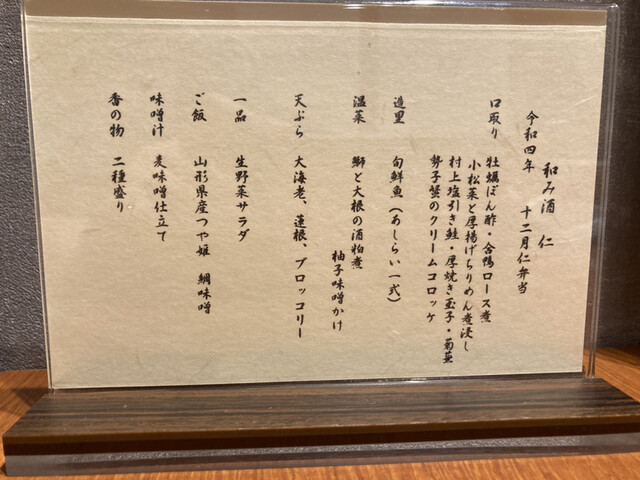 和み酒 仁
令和四年 十二月仁弁当
口取り 牡蠣ぽん酢・合鴨ロース煮
小松菜と厚揚げちりめん煮浸し
村上塩引き鮭・厚焼き玉子・菊蕪
勢子蟹のクリームコロッケ
造里 旬鮮魚(あしらい一式)
温菜 鰤と大根の酒粕煮
柚子味噌かけ
天ぷら 大海老、蓮根、ブロッコリー
一品 生野菜サラダ
ご飯 山形県産つや姫 鯛味噌
味噌汁 麦味噌仕立て
香の物 二種盛り